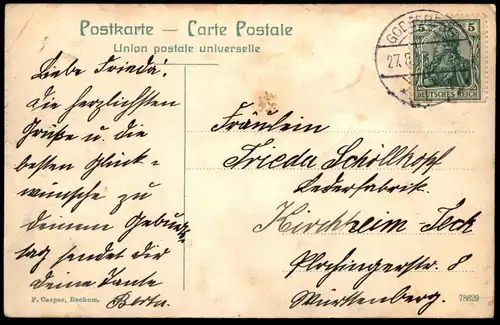 Postkarte — Carte Postale
Union postale universelle
Liebe Frieda!
Die herzlichsten
Grüße u. die
besten Glück-
wünsche zu
deinem Geburts-
tag sendet dir
deine Tante
Berta.
Fräulein
Frieda Schöllkopf
Lederfabrik.
Kirchheim-Teck
Plochingerstr. 8
Württenberg.
5
DEUTSCHES REICH
27.
P. Caspar, Bochum.
78629